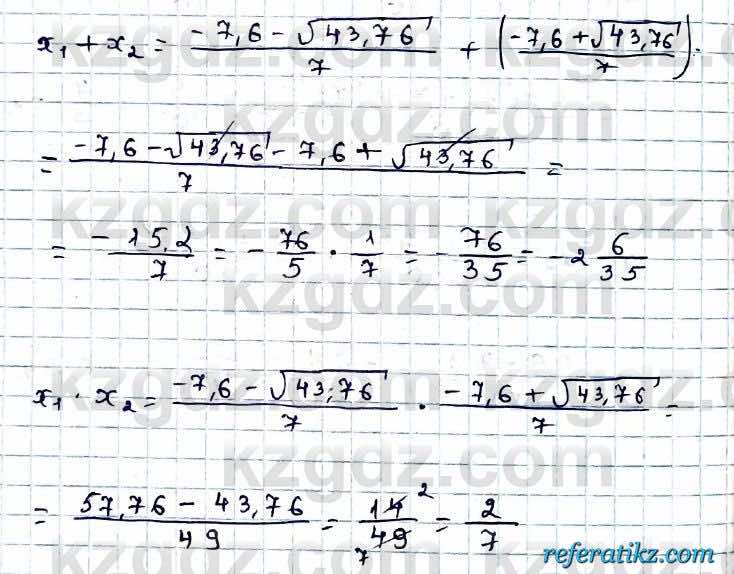 x₁ + x₂ = (-7,6 - √43,76)/7 + ((-7,6 + √43,76)/7).
= (-7,6 - √43,76 - 7,6 + √43,76)/7 =
= -15,2/7 = - 76/5 · 1/7 = - 76/35 = -2 6/35
x₁ · x₂ = (-7,6 - √43,76)/7 · (-7,6 + √43,76)/7 =
= (57,76 - 43,76)/49 = 14 2/49 7 = 2/7
kzgdz.com
referatikz.com